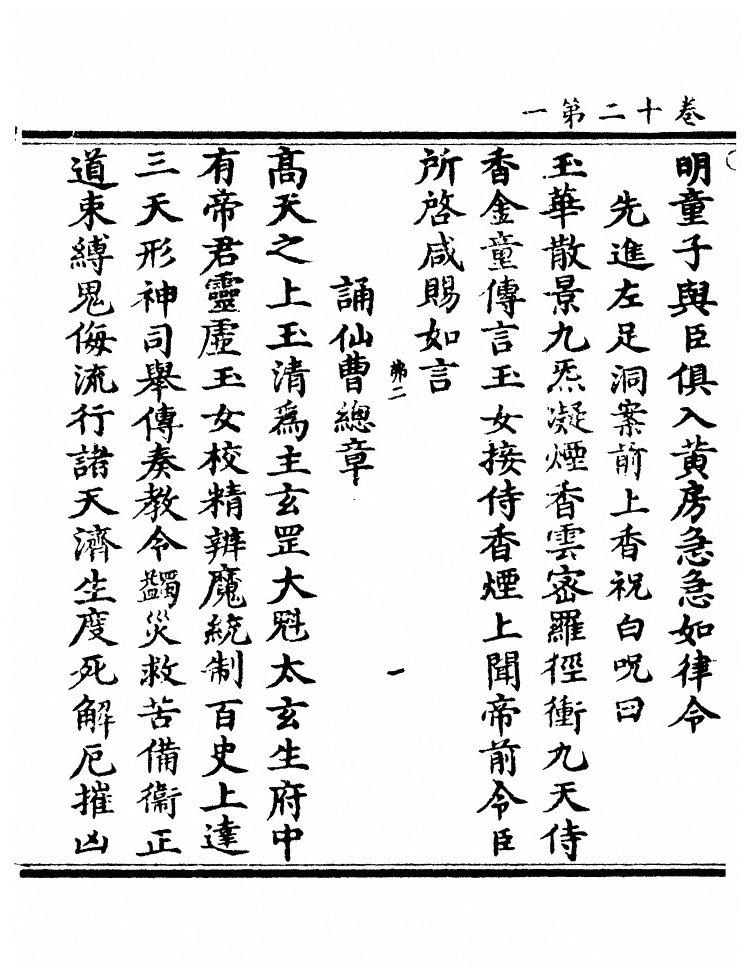 卷十二第一
明童子與臣俱入黃房急急如律令
先進左足洞案前上香祝白呪曰
玉華散景九炁凝煙香雲密羅徑衝九天侍
香金童傳言玉女接侍香煙上聞帝前令臣
所啓咸賜如言
第二
一
誦仙曹總章
高天之上玉清爲主玄罡大魁太玄生府中
有帝君靈虛玉女校精辨魔統制百史上達
三天形神司舉傳奏教令蠲災救苦備衛正
道束縛鬼侮流行諸天濟生度死解厄摧凶